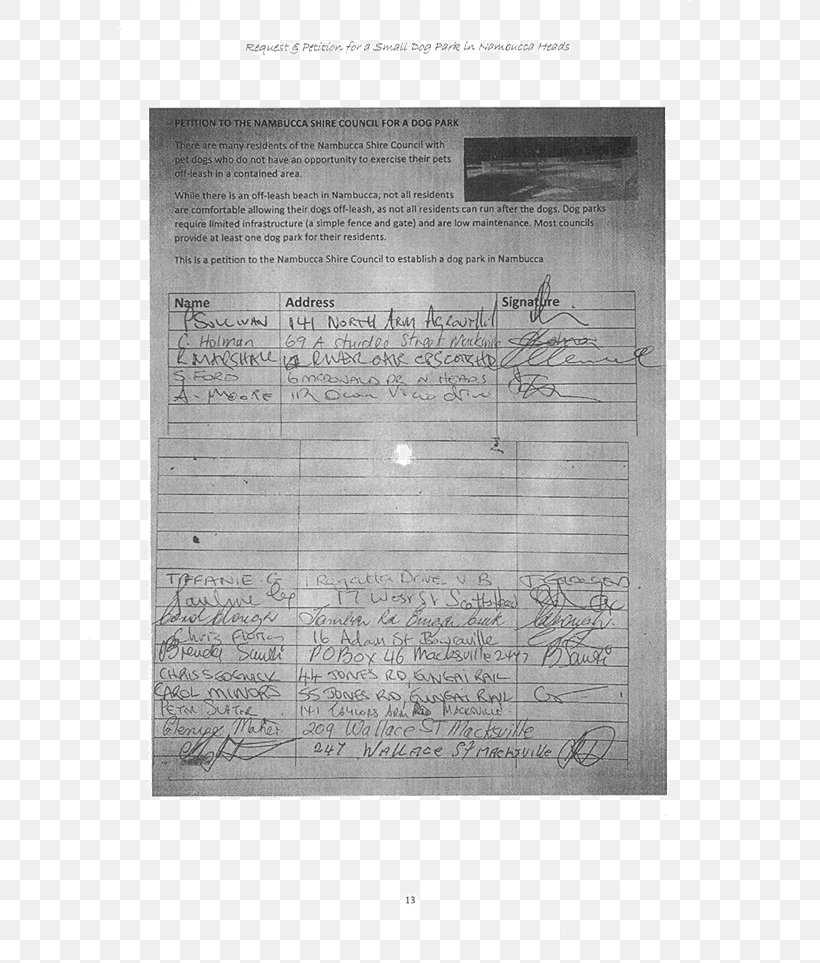 Request & Petition for a Small Dog Park in Nambucca Heads
PETITION TO THE NAMBUCCA SHIRE COUNCIL FOR A DOG PARK
There are many residents of the Nambucca Shire Council with
pet dogs who do not have an opportunity to exercise their pets
off-leash in a contained area.
While there is an off-leash beach in Nambucca, not all residents
are comfortable allowing their dogs off-leash, as not all residents can run after the dogs. Dog parks
require limited infrastructure (a simple fence and gate) and are low maintenance. Most councils
provide at least one dog park for their residents.
This is a petition to the Nambucca Shire Council to establish a dog park in Nambucca
Name Address Signature
P SULLIVAN 141 NORTH ARM
C. Holman 69 A Street
R MARSHALL RIVER OAK
S. FORD 6 McDONALD DR N HEADS
A. MOORE Ocean View Drive
TIFFANIE G 1 Regatta Drive V B
Pauline 17 West St
Rd
Chris 16 Adam St Bowraville
Brenda PO Box 46 Macksville 2447
CHRIS 44 JONES RD,
CAROL MINORS 55 JONES RD,
PETER SLATER 141 TAYLORS ARM RD MACKSVILLE
209 Wallace ST Macksville
247 WALLACE ST MACKSVILLE
13